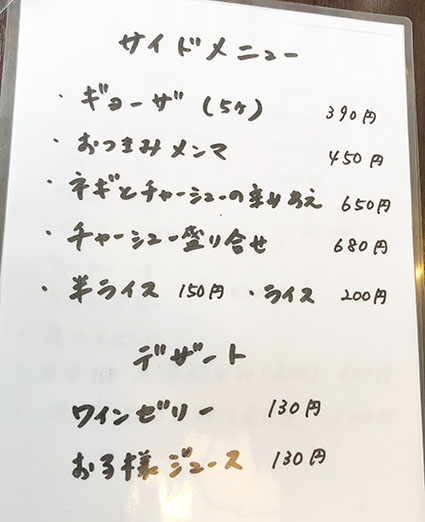 サイドメニュー
・ギョーザ (5ヶ) 390円
・おつまみメンマ 450円
・ネギとチャーシューの辛みあえ 650円
・チャーシュー盛り合せ 680円
・半ライス 150円 ・ライス 200円
デザート
ワインゼリー 130円
お子様ジュース 130円